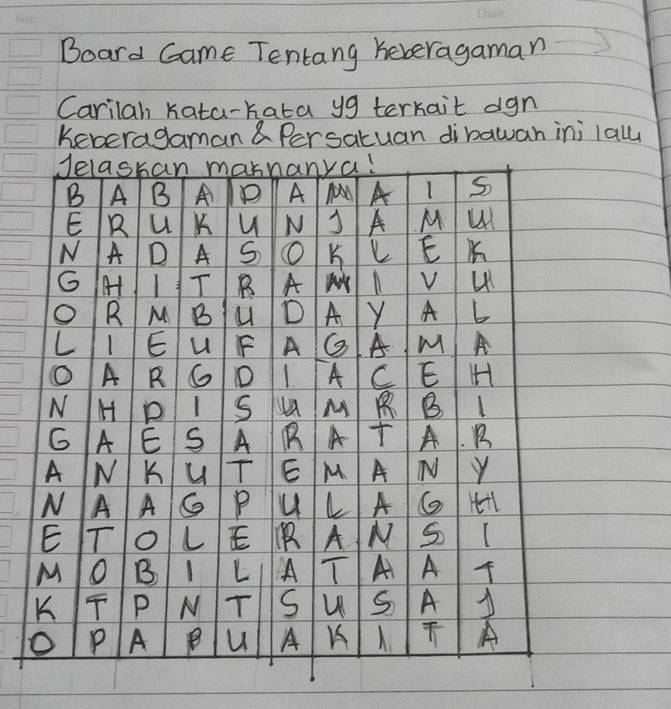 No:
Date:
Board Game Tentang keberagaman
Carilah kata-kata yg terkait dgn
Keberagaman & Persatuan dibawah ini lalu
Jelaskan maknanya!
B A B A D A M A I S
E R U K U N J A M U
N A D A S O K L E K
G H I T R A M I V U
O R M B U D A Y A L
L I E U F A G A M A
O A R G D I A C E H
N H D I S U M R B I
G A E S A R A T A R
A N K U T E M A N Y
N A A G P U L A G H
E T O L E R A N S I
M O B I L A T A A T
K T P N T S U S A J
O P A P U A K I T A